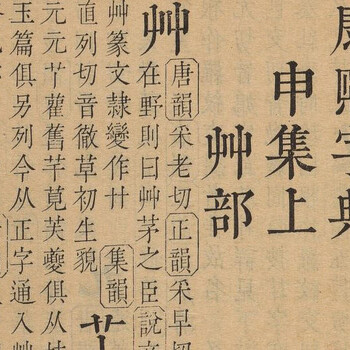 康熙字典
申集上
艸部
艸
唐韻采老切正韻采早切
在野則曰艸茅之臣說文
艸篆文隸變作艹
集韻
直列切音徹草初生貌
艹
元元艹雚舊芊莧芙夔俱从
玉篇俱另列今从正字通入艸